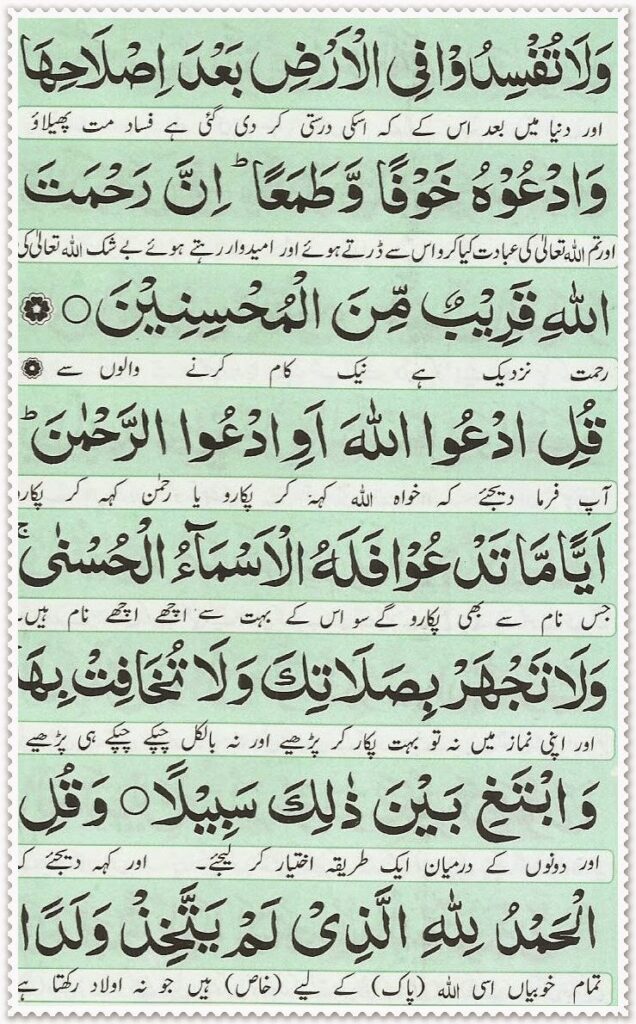 وَلَا تُفْسِدُوْا فِی الْاَرْضِ بَعْدَ اِصْلَاحِهَا
اور دنیا میں بعد اس کے کہ اسکی درستی کر دی گئی ہے فساد مت پھیلاؤ
وَادْعُوْهُ خَوْفًا وَّطَمَعًا ؕ اِنَّ رَحْمَتَ
اور تم اللہ تعالیٰ کی عبادت کیا کرو اس سے ڈرتے ہوئے اور امیدوار رہتے ہوئے بے شک اللہ تعالیٰ کی
اللهِ قَرِیْبٌ مِّنَ الْمُحْسِنِیْنَ ○
رحمت نزدیک ہے نیک کام کرنے والوں سے
قُلِ ادْعُوا اللهَ اَوِ ادْعُوا الرَّحْمٰنَ ؕ
آپ فرما دیجئے کہ خواہ اللہ کہہ کر پکارو یا رحمٰن کہہ کر پکارو
اَیًّا مَّا تَدْعُوْا فَلَهُ الْاَسْمَآءُ الْحُسْنٰی ۚ
جس نام سے بھی پکارو گے سو اس کے بہت سے اچھے اچھے نام ہیں۔
وَلَا تَجْهَرْ بِصَلَاتِكَ وَلَا تُخَافِتْ بِهَا
اور اپنی نماز میں نہ تو بہت پکار کر پڑھیے اور نہ بالکل چپکے چپکے ہی پڑھیے
وَابْتَغِ بَیْنَ ذٰلِكَ سَبِیْلًا ○ وَقُلِ
اور دونوں کے درمیان ایک طریقہ اختیار کر لیجئے۔ اور کہہ دیجئے ک
الْحَمْدُ لِلّٰهِ الَّذِیْ لَمْ یَتَّخِذْ وَلَدًا
تمام خوبیاں اسی اللہ (پاک) کے لیے (خاص) ہیں جو نہ اولاد رکھتا ہے